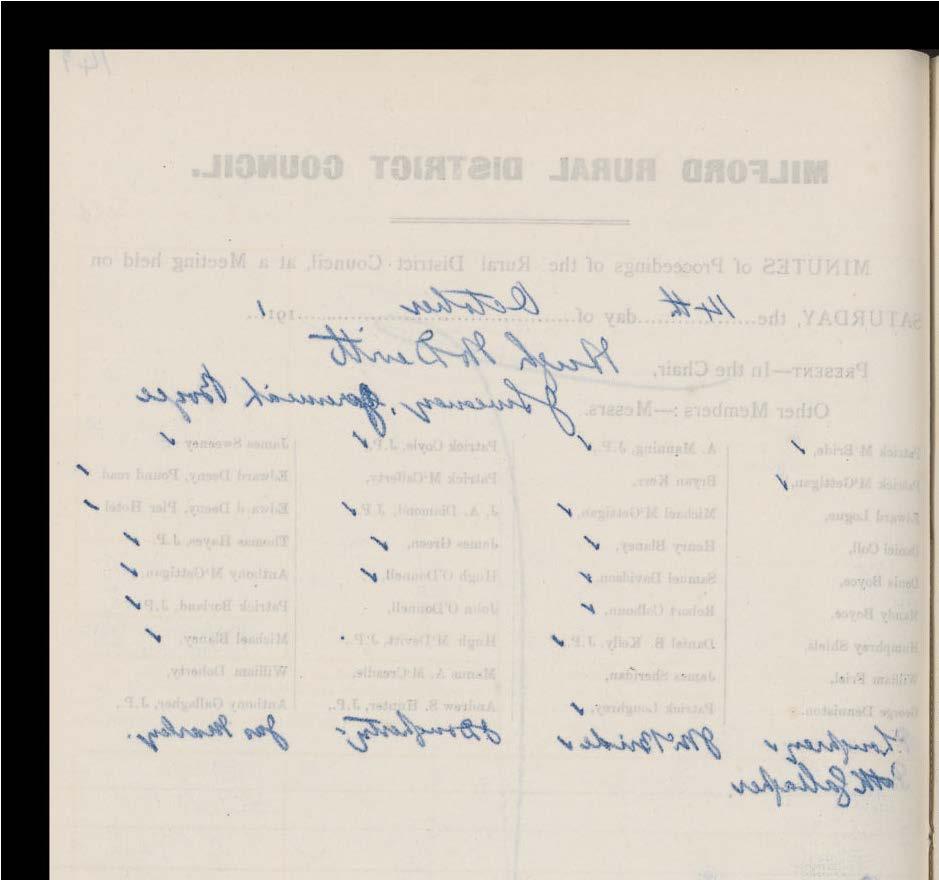 149
MILFORD RURAL DISTRICT COUNCIL.
MINUTES of Proceedings of the Rural District Council, at a Meeting held on
SATURDAY, the 14th day of October 1911.
PRESENT—In the Chair, Hugh McDevitt
Other Members :—Messrs. Jeremiah Boyce
Patrick M'Bride, ✓ A. Manning, J.P., ✓ Patrick Coyle, J.P., ✓ James Sweeney ✓
Patrick M'Gettigan, ✓ Bryan Kerr, Patrick M'Cafferty, Edward Deeny, Pound road ✓
Edward Logue, Michael M'Gettigan, ✓ J. A. Diamond, J.P. ✓ Edward Deeny, Pier Hotel ✓
Daniel Coll, Henry Blaney, ✓ James Green, ✓ Thomas Hayes, J.P. ✓
Denis Boyce, Samuel Davidson, ✓ Hugh O'Donnell, ✓ Anthony M'Gettigan, ✓
Mandy Boyce, Robert Colhoun, ✓ John O'Donnell, Patrick Borland, J.P. ✓
Humphrey Shiels, Daniel B. Kelly, J.P., ✓ Hugh M'Devitt, J.P., Michael Blaney, ✓
William Friel, James Sheridan, Manus A. M'Creadie, William Doherty,
George Denniston. Patrick Loughrey, ✓ Andrew S. Hunter, J.P., Anthony Gallagher, J.P.
Loughrey ✓ McBride ✓ Dougherty Jas Markey.
Gallagher